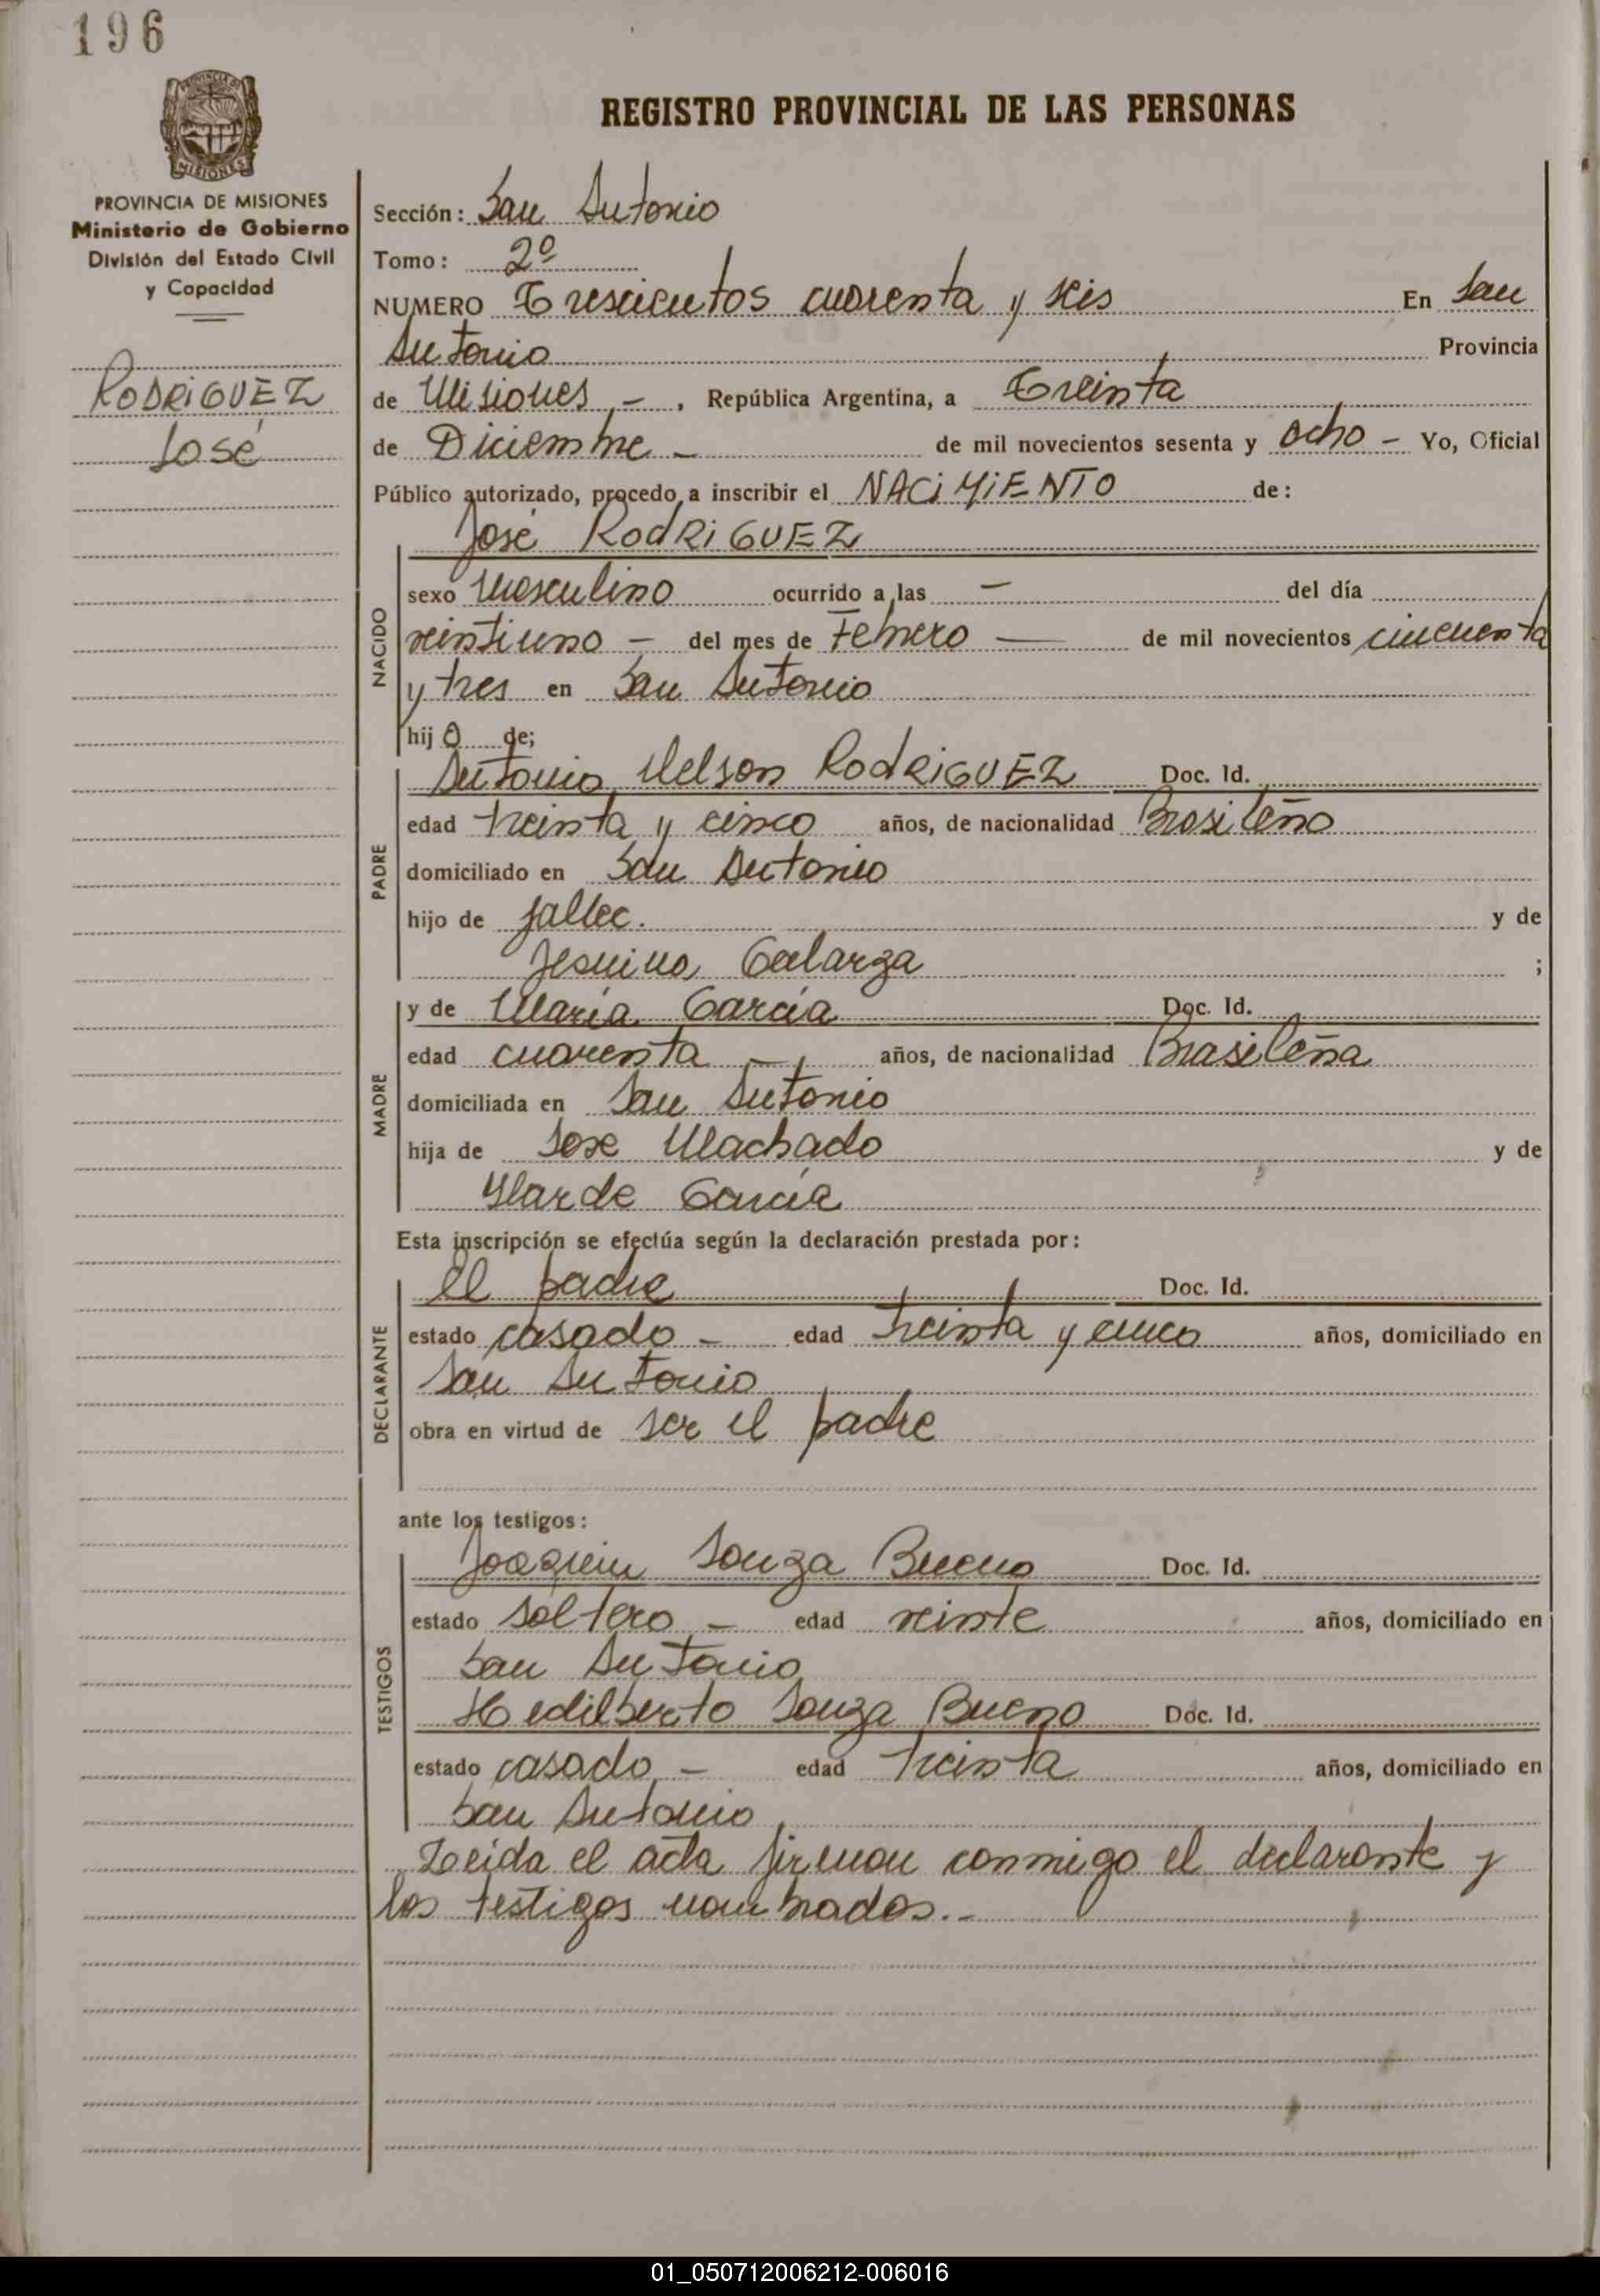 196
PROVINCIA DE
MISIONES
PROVINCIA DE MISIONES
Ministerio de Gobierno
División del Estado Civil
y Capacidad
RODRIGUEZ
José
REGISTRO PROVINCIAL DE LAS PERSONAS
Sección: San Antonio
Tomo: 2º
NUMERO Trescientos cuarenta y seis En San
Antonio Provincia
de Misiones - , República Argentina, a Treinta
de Diciembre - de mil novecientos sesenta y ocho - Yo, Oficial
Público autorizado, procedo a inscribir el NACIMIENTO de:
José RODRIGUEZ
NACIDO
sexo Masculino ocurrido a las - del día
veintiuno - del mes de Febrero - de mil novecientos cincuenta
y tres en San Antonio
hijo de;
PADRE
Antonio Nelson RODRIGUEZ Doc. Id.
edad treinta y cinco años, de nacionalidad Brasileño
domiciliado en San Antonio
hijo de fallec. y de
Galarza ;
MADRE
y de María García Doc. Id.
edad cuarenta - años, de nacionalidad Brasileña
domiciliada en San Antonio
hija de Jose Machado y de
García
Esta inscripción se efectúa según la declaración prestada por:
DECLARANTE
el padre Doc. Id.
estado casado - edad treinta y cinco años, domiciliado en
San Antonio
obra en virtud de ser el padre
ante los testigos:
TESTIGOS
Joaquin Souza Bueno Doc. Id.
estado soltero - edad veinte años, domiciliado en
San Antonio
Hedilberto Souza Bueno Doc. Id.
estado casado - edad treinta años, domiciliado en
San Antonio
Leída el acta firman conmigo el declarante y
los testigos nombrados.-
01_050712006212-006016